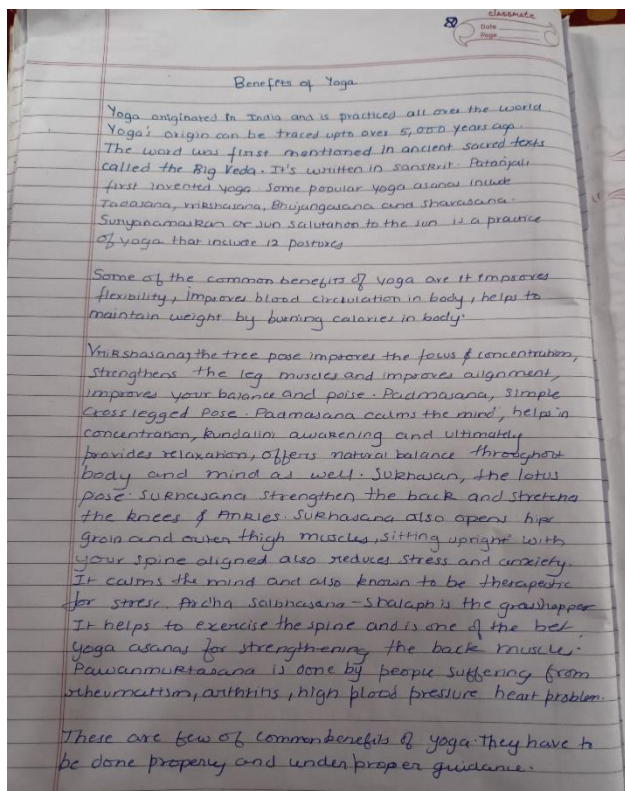 classmate
Date
Page
Benefits of Yoga
Yoga originated in India and is practiced all over the world
Yoga's origin can be traced upto over 5,000 years ago
The word was first mentioned in ancient sacred texts
called the Rig Veda. It's written in sanskrit. Patanjali
first invented yoga some popular yoga asanas include
Tadasana, vrikshasana, Bhujangasana and shavasana.
Suryanamaskar or sun salutation to the sun is a practice
of yoga that include 12 postures
Some of the common benefits of yoga are it improves
flexibility, improves blood circulation in body, helps to
maintain weight by burning calories in body.
Vrikshasana, the tree pose improves the focus & concentration,
strengthens the leg muscles and improves alignment,
improves your balance and poise. Padmasana, simple
cross legged pose. Padmasana calms the mind, helps in
concentration, kundalini awakening and ultimately
provides relaxation, offers natural balance throughout
body and mind as well. Sukhasan, the lotus
pose. Sukhasana strengthen the back and stretches
the knees & Ankles. Sukhasana also opens hips
groin and outer thigh muscles, sitting upright with
your spine aligned also reduces stress and anxiety.
It calms the mind and also known to be therapeutic
for stress. Ardha salbhasana - shalaph is the grasshopper
It helps to exercise the spine and is one of the best
yoga asanas for strength-ening the back muscles.
Pawanmuktasana is done by people suffering from
rheumatism, arthritis, high blood pressure heart problem.
These are few of common benefits of yoga. They have to
be done properly and under proper guidance.